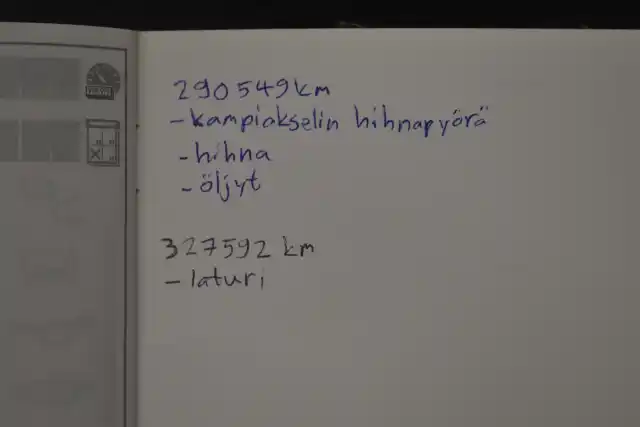 290549km
-kampiakselin hihnapyörä
-hihna
-öljyt
327592 km
-laturi